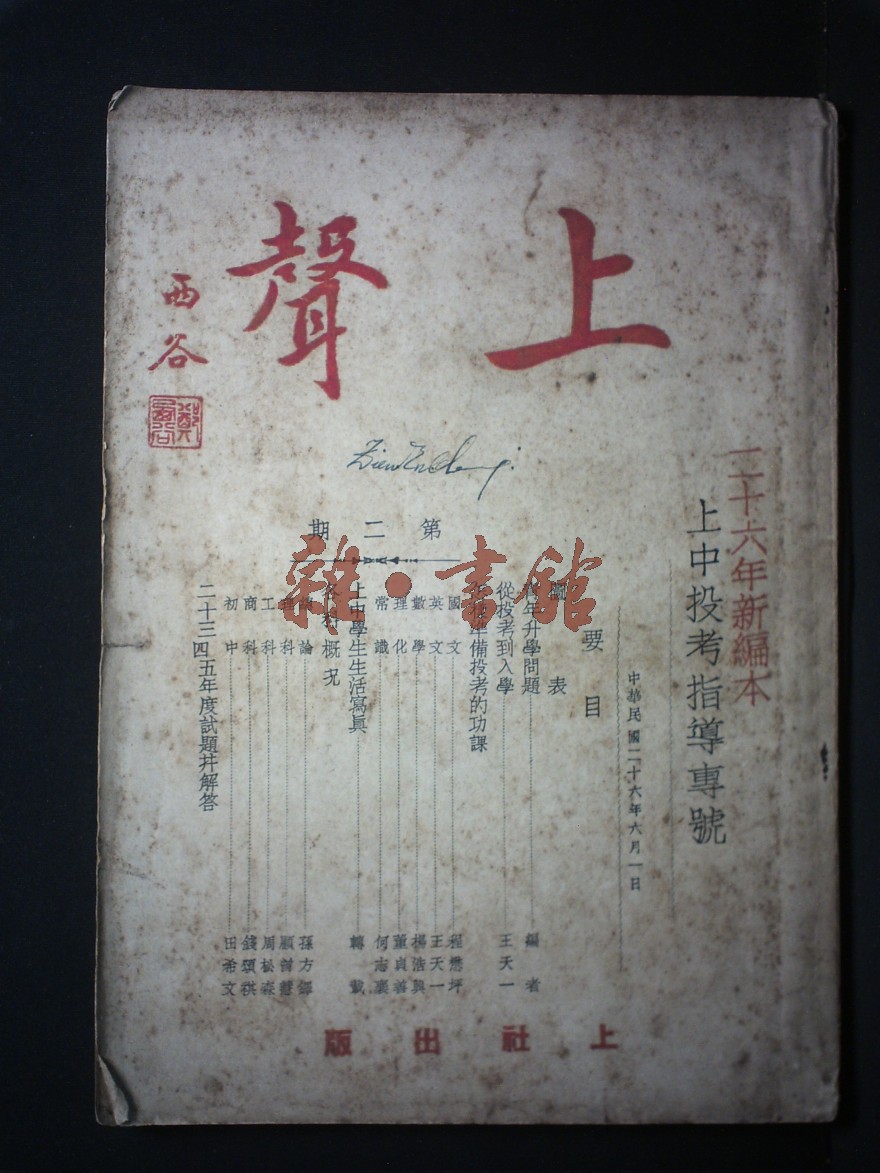 上聲
西谷
鄭西谷
第二期
雜·書館
二十六年新編本
上中投考指導專號
中華民國二十六年六月一日
要目
圖表
青年升學問題 編者
從投考到入學 王天一
怎樣準備投考的功課
國文 程懋坪
英文 王天一
數學 楊浩興
理化 董貞善
常識
上中學生生活寫眞 轉載
各科概況
總論 孫方鐸
理科
工科 周松森
商科
初中 田希文
二十三四五年度試題并解答
上社出版